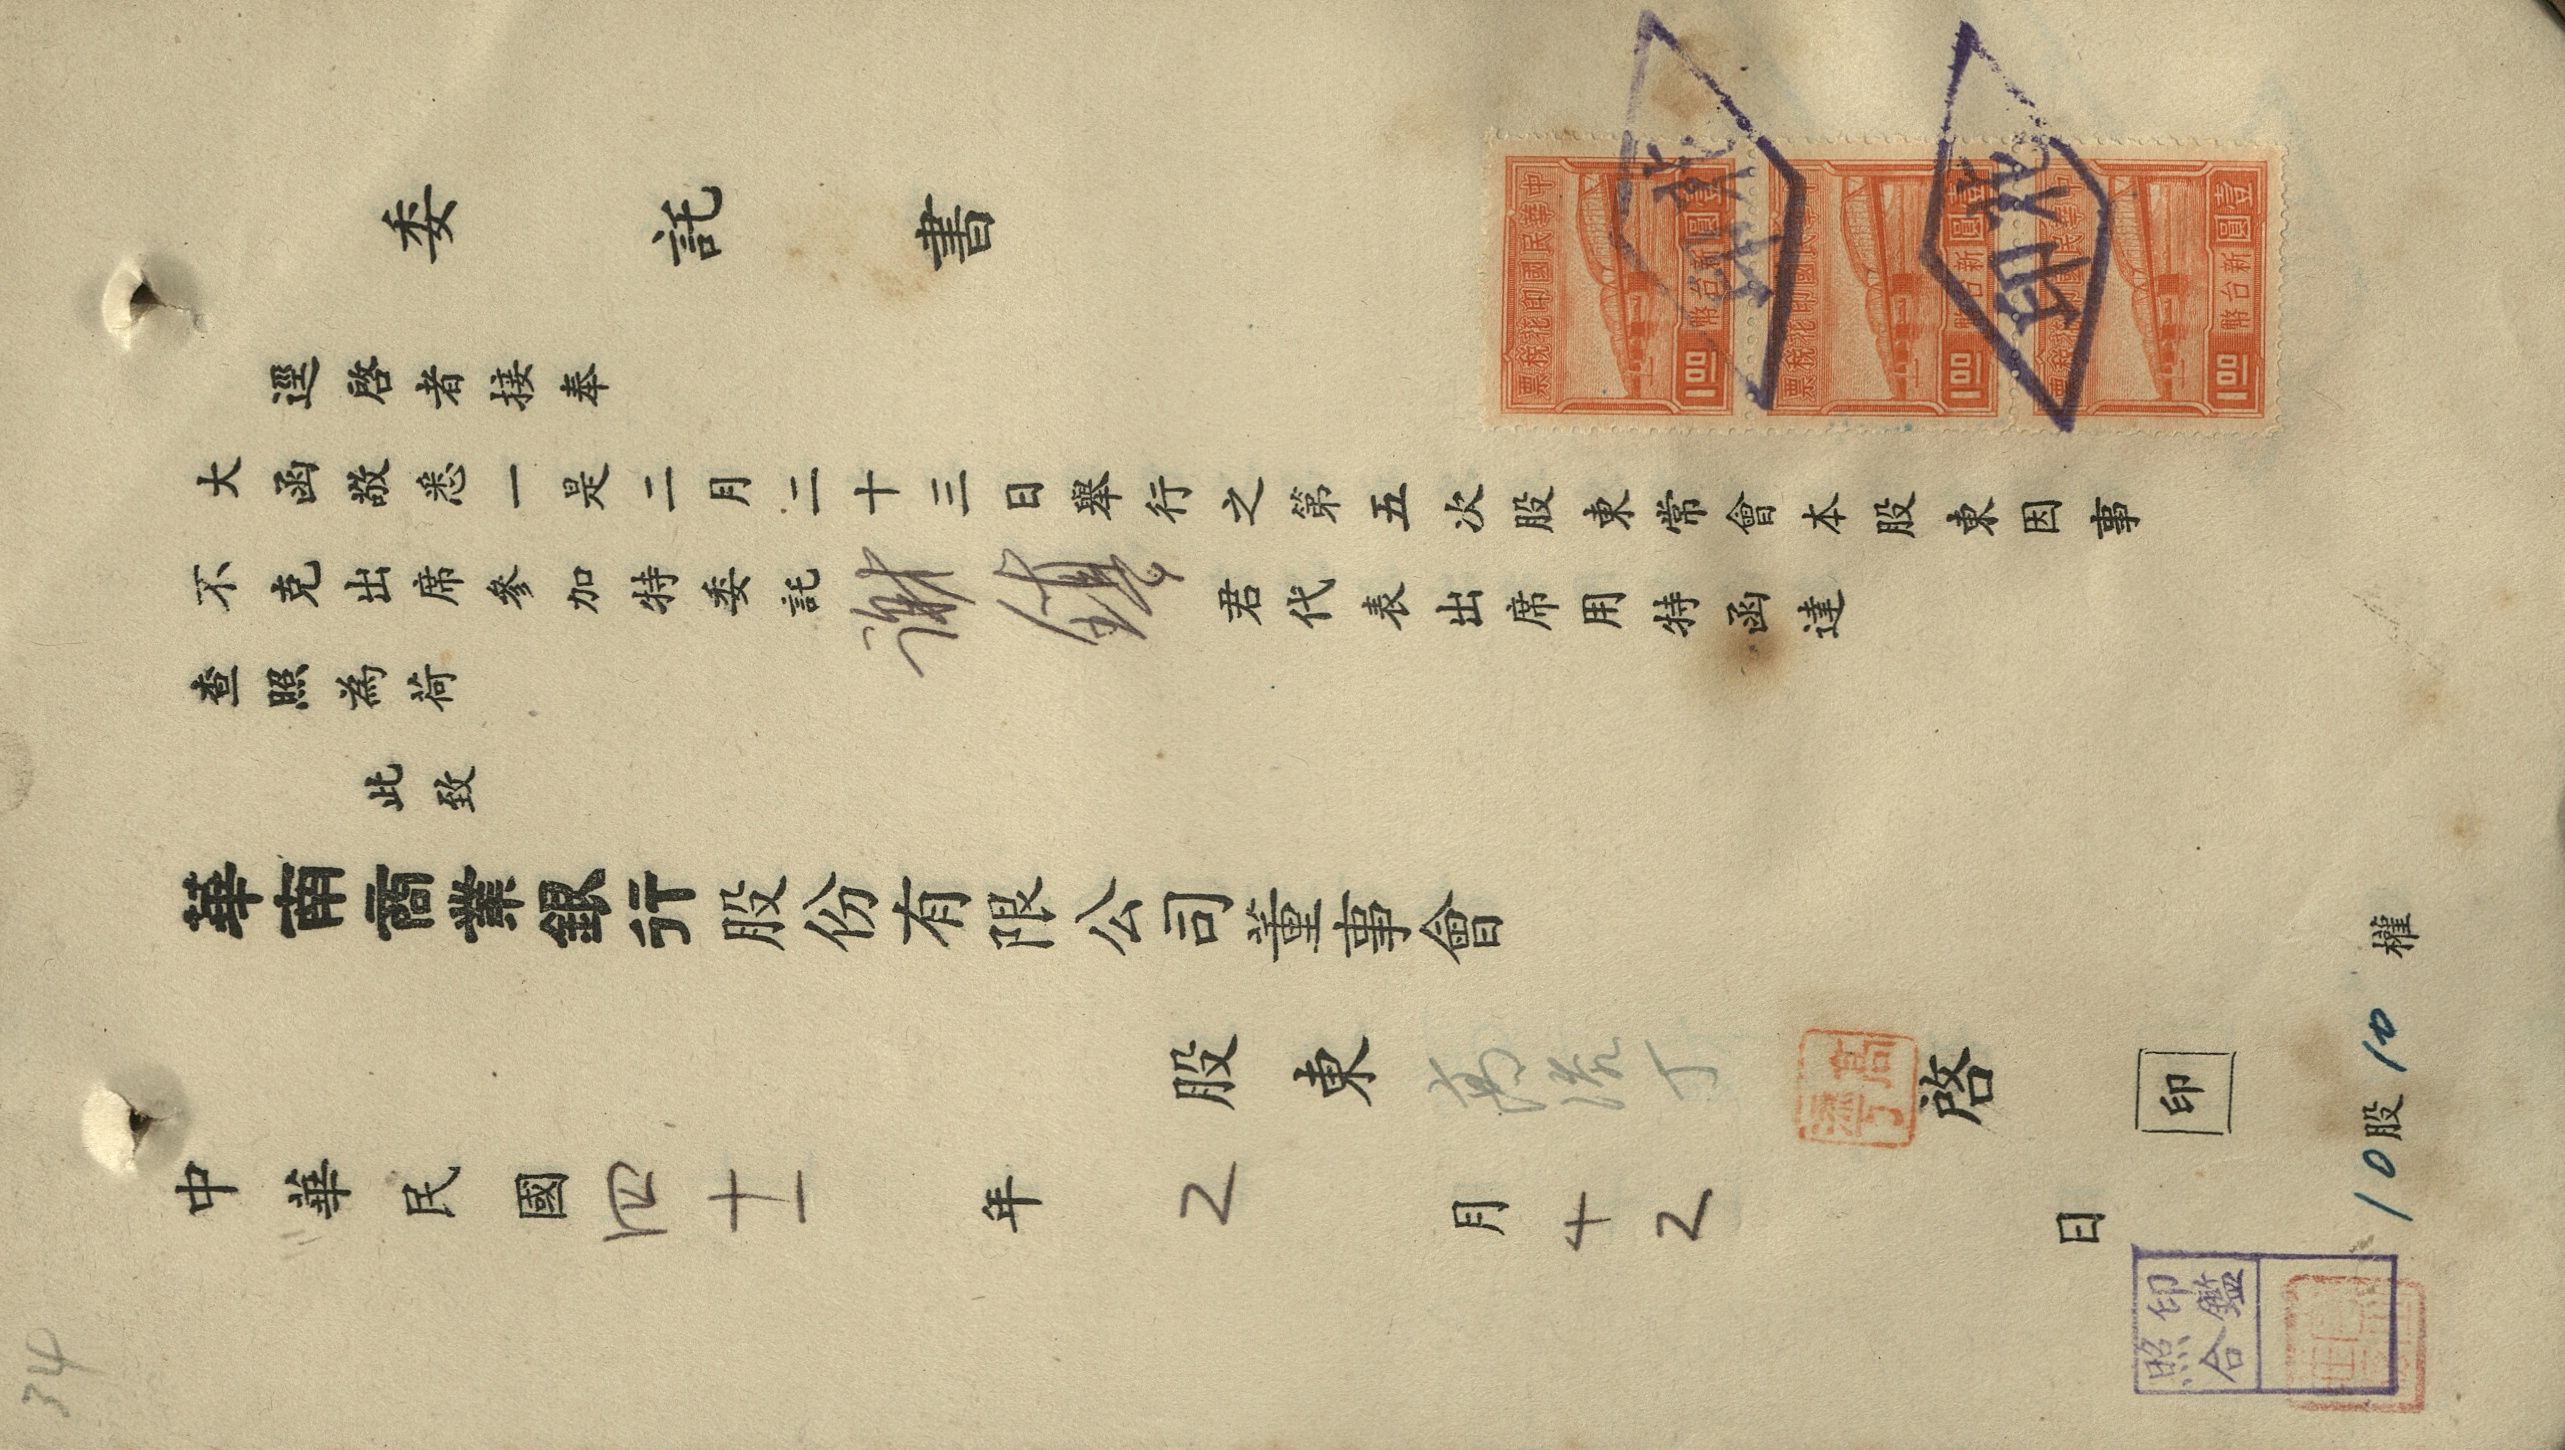 委託書
逕啓者接奉
大函敬悉一是二月二十三日舉行之第五次股東常會本股東因事
不克出席參加特委託謝鎮君代表出席用特函達
查照為荷
此致
華南商業銀行股份有限公司董事會
股東 啓 印
中華民國四十一年2月十2日
10股10權
印鑑
照合
中華民國印花稅票
壹圓新台幣
1.00
中華民國印花稅票
壹圓新台幣
1.00
中華民國印花稅票
壹圓新台幣
1.00
34